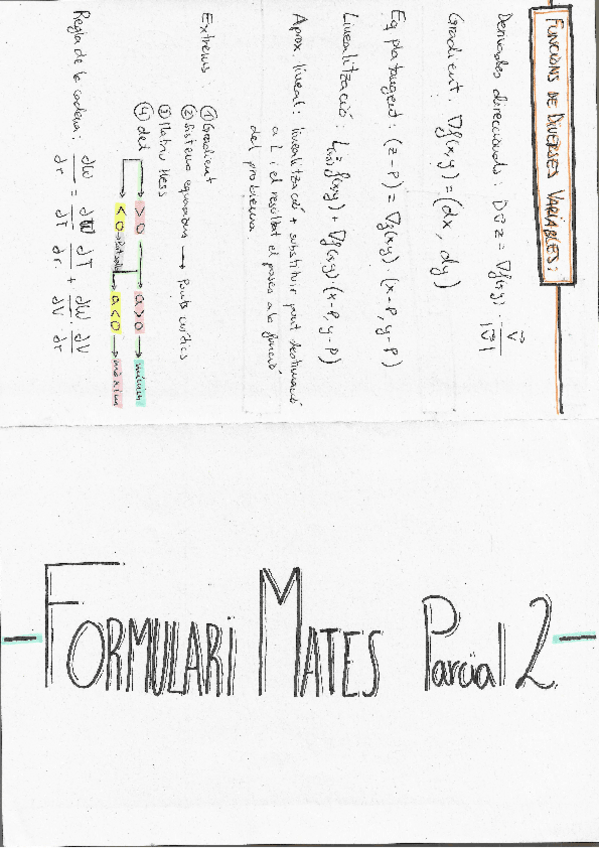 FUNCIONS DE DIVERSES VARIABLES:
Derivades direccionals: D v⃗ z = ∇f(x,y) · v⃗ / |v⃗|
Gradient: ∇f(x,y) = (dx, dy)
Eq pla tangent: (z-P) = ∇f(x,y) · (x-P, y-P)
Linealització: L(x,y) = f(x,y) + ∇f(x,y) · (x-P, y-P)
Aprox. lineal: linealització + substituir punt destinació
a L i el resultat el poses a la funció
del problema
Extrems: ① Gradient
② Sistema equacions → Punts crítics
③ Matriu Hess
④ det
> 0 → a > 0 → mínim
< 0 → a < 0 → màxim
Regla de la cadena: dW/dr = dW/dT · dT/dr + dW/dV · dV/dr
FORMULARI MATES Parcial 2